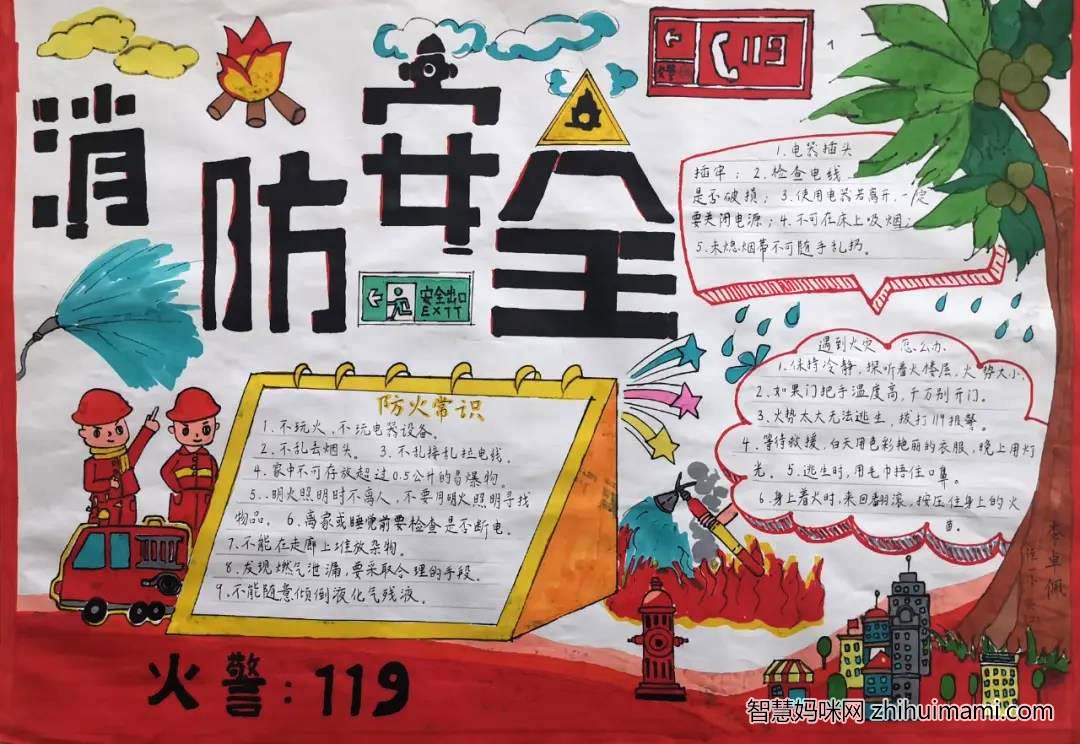 消防安全
119
安全出口
EXIT
1.电器插头
插牢；2.检查电线
是否破损；3.使用电器若离开，一定
要关闭电源；4.不可在床上吸烟；
5.未熄烟蒂不可随手乱扔。
遇到火灾 怎么办
1.保持冷静，探听着火楼层，火势大小。
2.如果门把手温度高，千万别开门。
3.火势太大无法逃生，拨打119报警。
4.等待救援，白天用色彩艳丽的衣服，晚上用灯
光。5.逃生时，用毛巾捂住口鼻。
6.身上着火时，来回翻滚，按压住身上的火
苗。
防火常识
1.不玩火，不玩电器设备。
2.不乱丢烟头。 3.不乱接乱拉电线。
4.家中不可存放超过0.5公升的易爆物。
5.明火照明时不离人，不要用明火照明寻找
物品。6.离家或睡觉前要检查是否断电。
7.不能在走廊上堆放杂物。
8.发现燃气泄漏，要采取合理的手段。
9.不能随意倾倒液化气残液。
李卓佩
火警：119
智慧妈咪网 zhihuimami.com